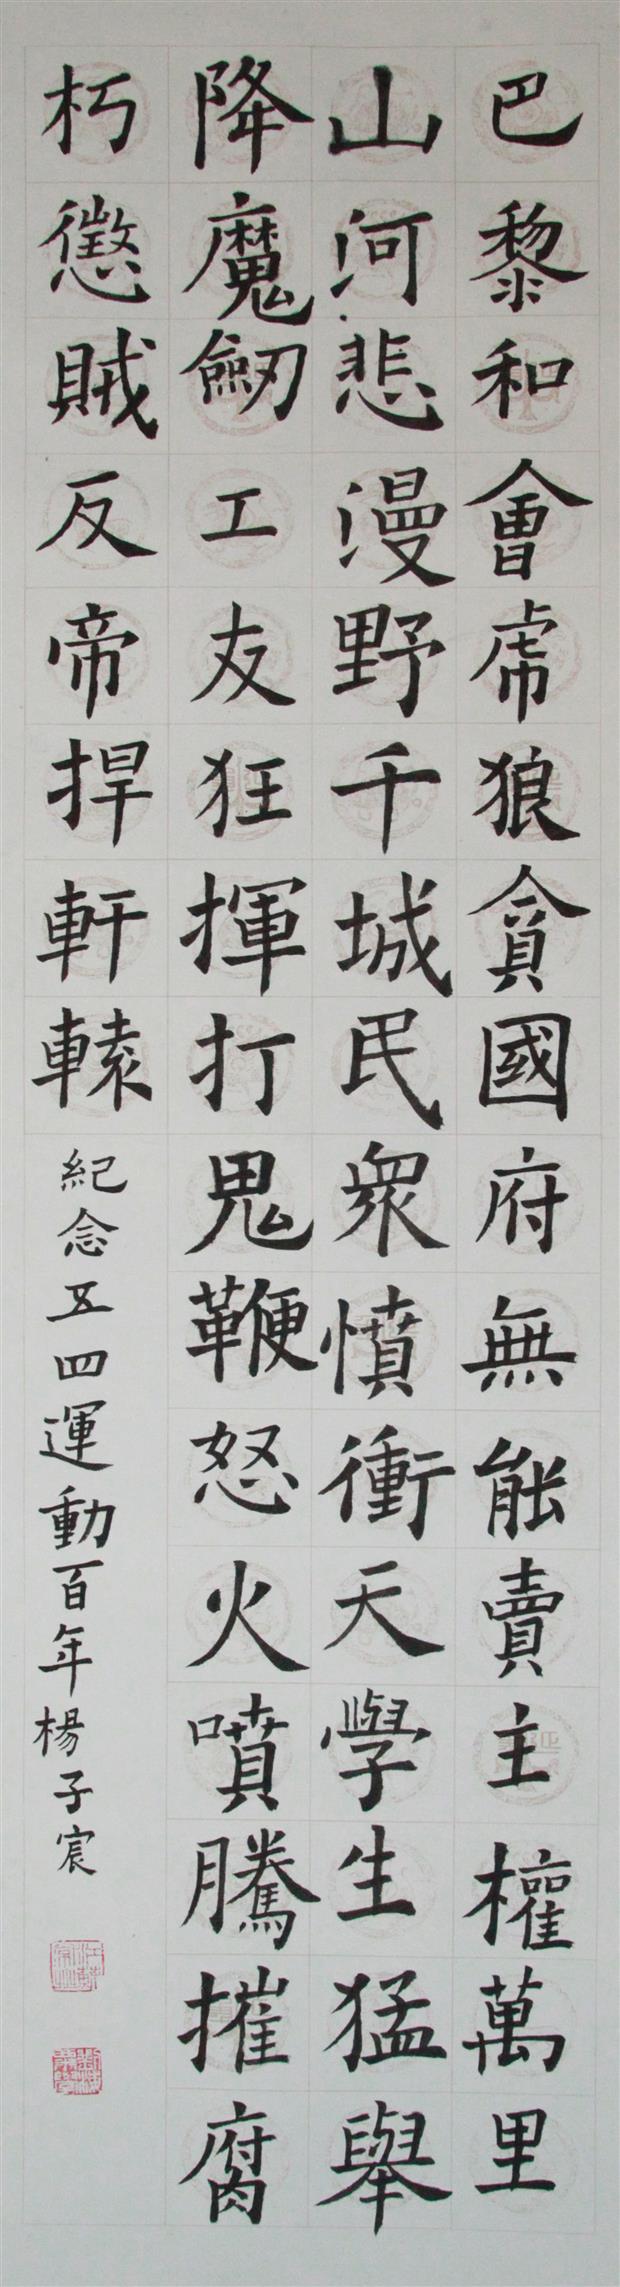 巴黎和會虎狼貪國府無能賣主權萬里
山河悲漫野千城民衆憤衝天學生猛舉
降魔劒工友狂揮打鬼鞭怒火噴騰摧腐
朽懲賊反帝捍軒轅
紀念五四運動百年楊子宸